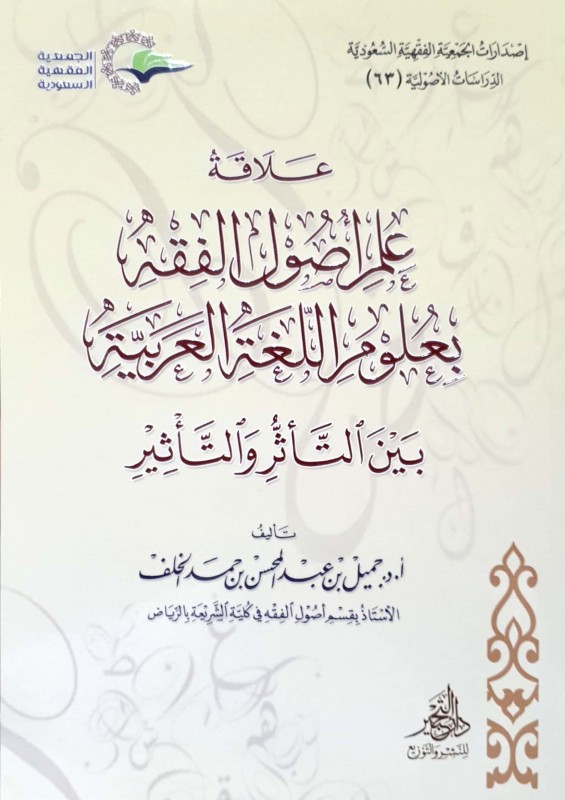 إصدارات الجمعية الفقهية السعودية
الدراسات الأصولية (٦٣)
الجمعية
الفقهية
السعودية
علاقة
علم أصول الفقه
بعلوم اللغة العربية
بين التأثر والتأثير
تأليف
أ.د. جميل بن عبد المحسن بن حمد الخلف
الأستاذ بقسم أصول الفقه في كلية الشريعة بالرياض
دار التحبير
للنشر والتوزيع